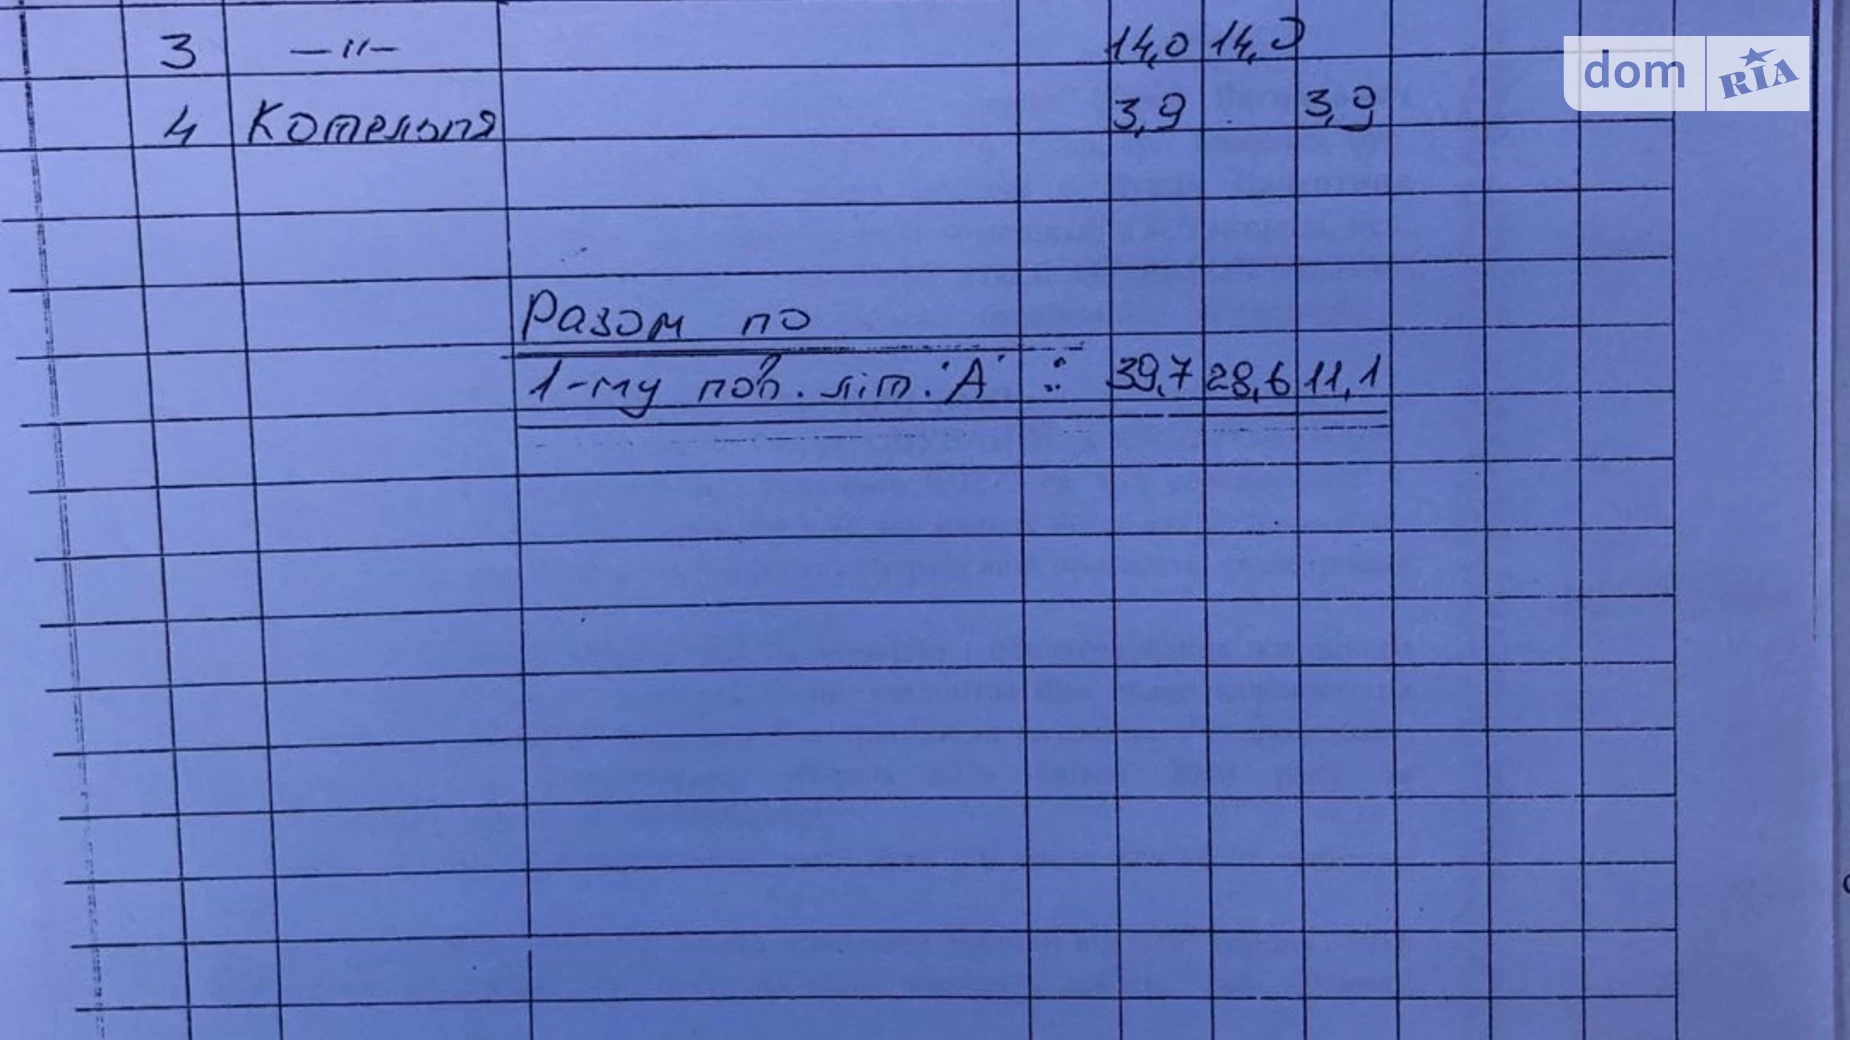 3 —"— 14,0 14,0
dom RIA
4 Котельня 3,9 3,9
Разом по
1-му пов. літ. "А" : 39,7 28,6 11,1